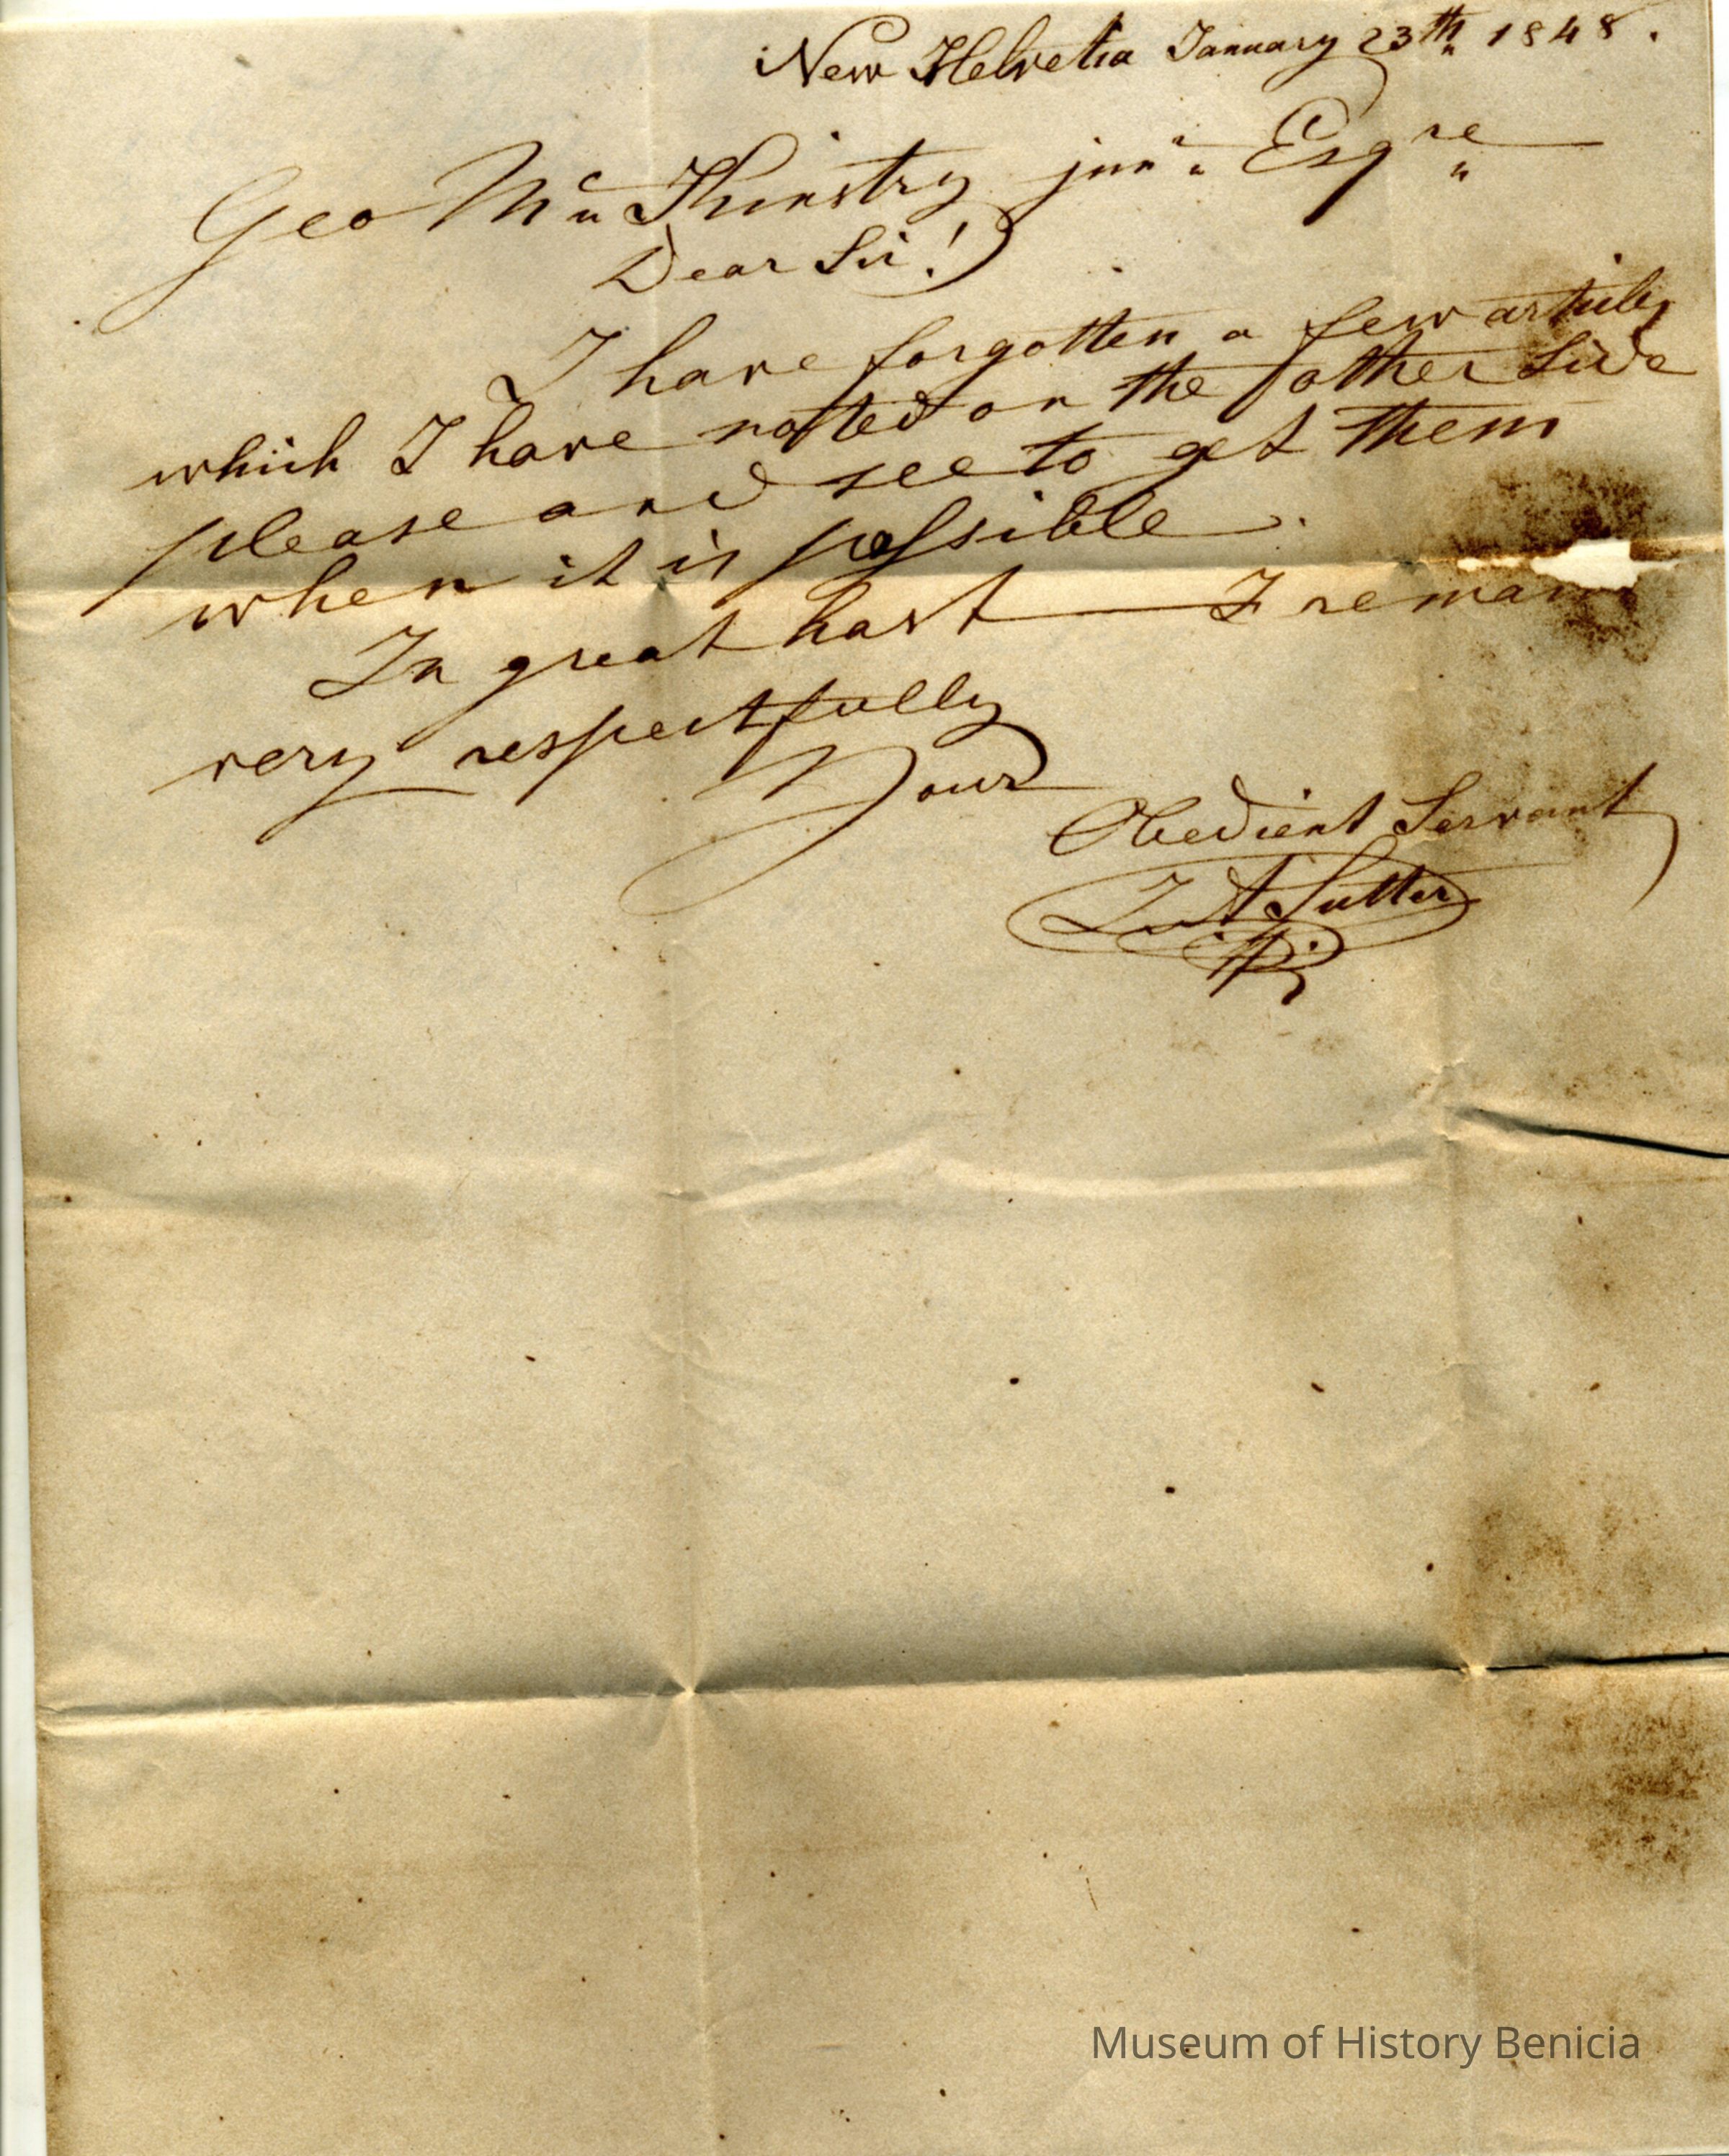 New Helvetia January 23th 1848.
Geo Mc Kinstry junr Esqre
Dear Sir!
I have forgotten a few articles
which I have notted on the other Side
please and see to get them
when it is possible.
In great hast — I remain
very respectfully
Your
Obedient Servant
J A Sutter
Museum of History Benicia